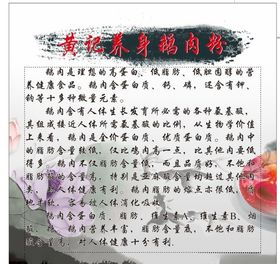 黄记养身鹅肉粉
鹅肉是理想的高蛋白、低脂肪、低胆固醇的营
养健康食品。鹅肉含蛋白质、钙、磷，还含有钾、
钠等十多种微量元素。
鹅肉含有人体生长发育所必需的各种氨基酸，
其组成接近人体所需氨基酸的比例，从生物学价值
上来看，鹅肉是全价蛋白质，优质蛋白质。鹅肉中
的脂肪含量较低，仅比鸡肉高一点，比其他肉要低
得多。鹅肉不仅脂肪含量低，而且品质好，不饱和
脂肪酸的含量高，特别是亚麻酸含量均超过其他肉
类，对人体健康有利。鹅肉脂肪的熔点亦很低，质
地柔软，容易被人体消化吸收。
鹅肉含蛋白质，脂肪，维生素A、维生素B、烟
酸、糖。鹅肉营养丰富，脂肪含量底，不饱和脂
肪酸含量高，对人体健康十分有利